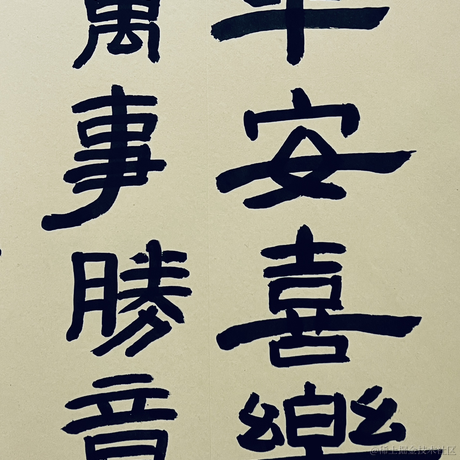 平安喜樂
萬事勝意
@稀土掘金技术社区